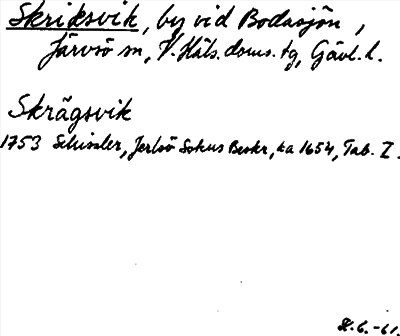 Skriksvik, by vid Bodasjön,
Järvsö sn, V. Häls. doms. tg, Gävl. l.
Skrägsvik
1753 Schissler, Jerlsö Sokns Beskr, ka 1654, Tab. I.
6.-61.